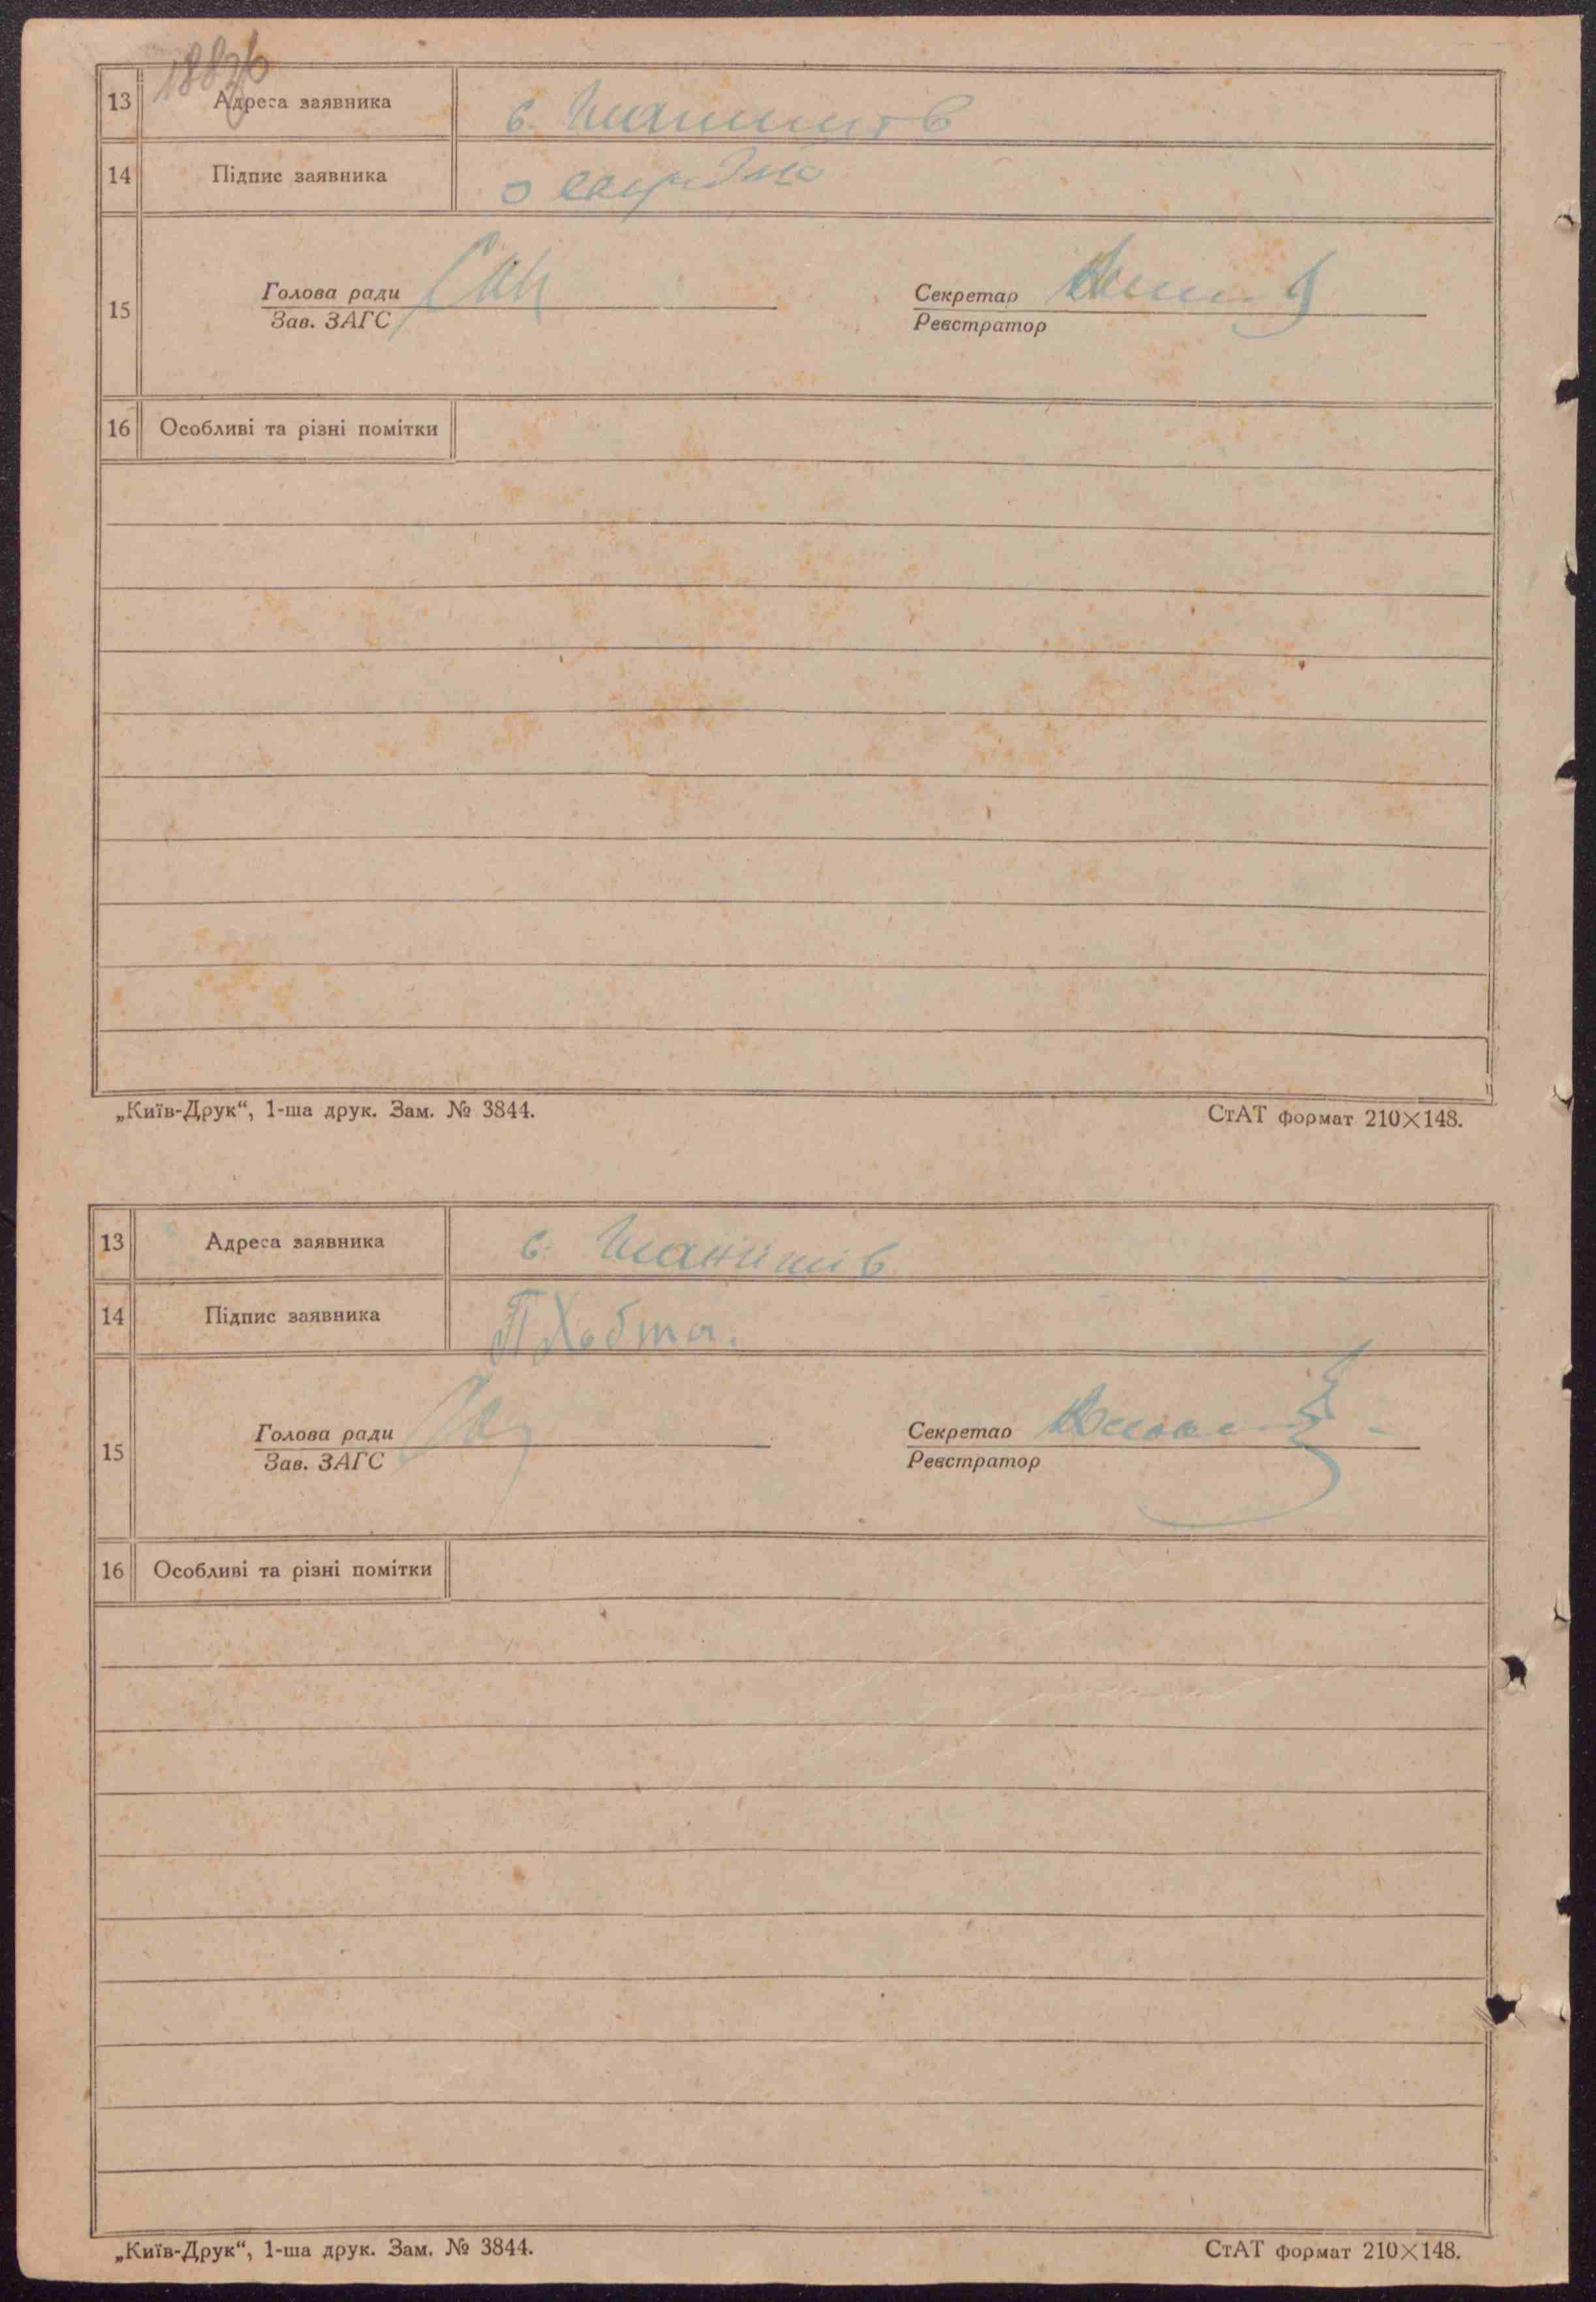 13 Адреса заявника
14 Підпис заявника
15 Голова ради Секретар
Зав. ЗАГС Реєстратор
16 Особливі та різні помітки
„Київ-Друк“, 1-ша друк. Зам. № 3844. СтАТ формат 210×148.
13 Адреса заявника с.
14 Підпис заявника ПХобта.
15 Голова ради Секретар
Зав. ЗАГС Реєстратор
16 Особливі та різні помітки
„Київ-Друк“, 1-ша друк. Зам. № 3844. СтАТ формат 210×148.